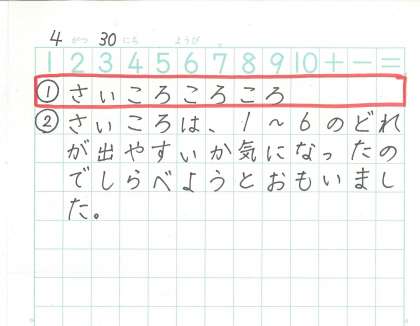 4 がつ 30 にち ようび
1 2 3 4 5 6 7 8 9 10 + − =
① さいころころころ
② さいころは、1~6のどれ
が出やすいか気になったの
でしらべようとおもいまし
た。